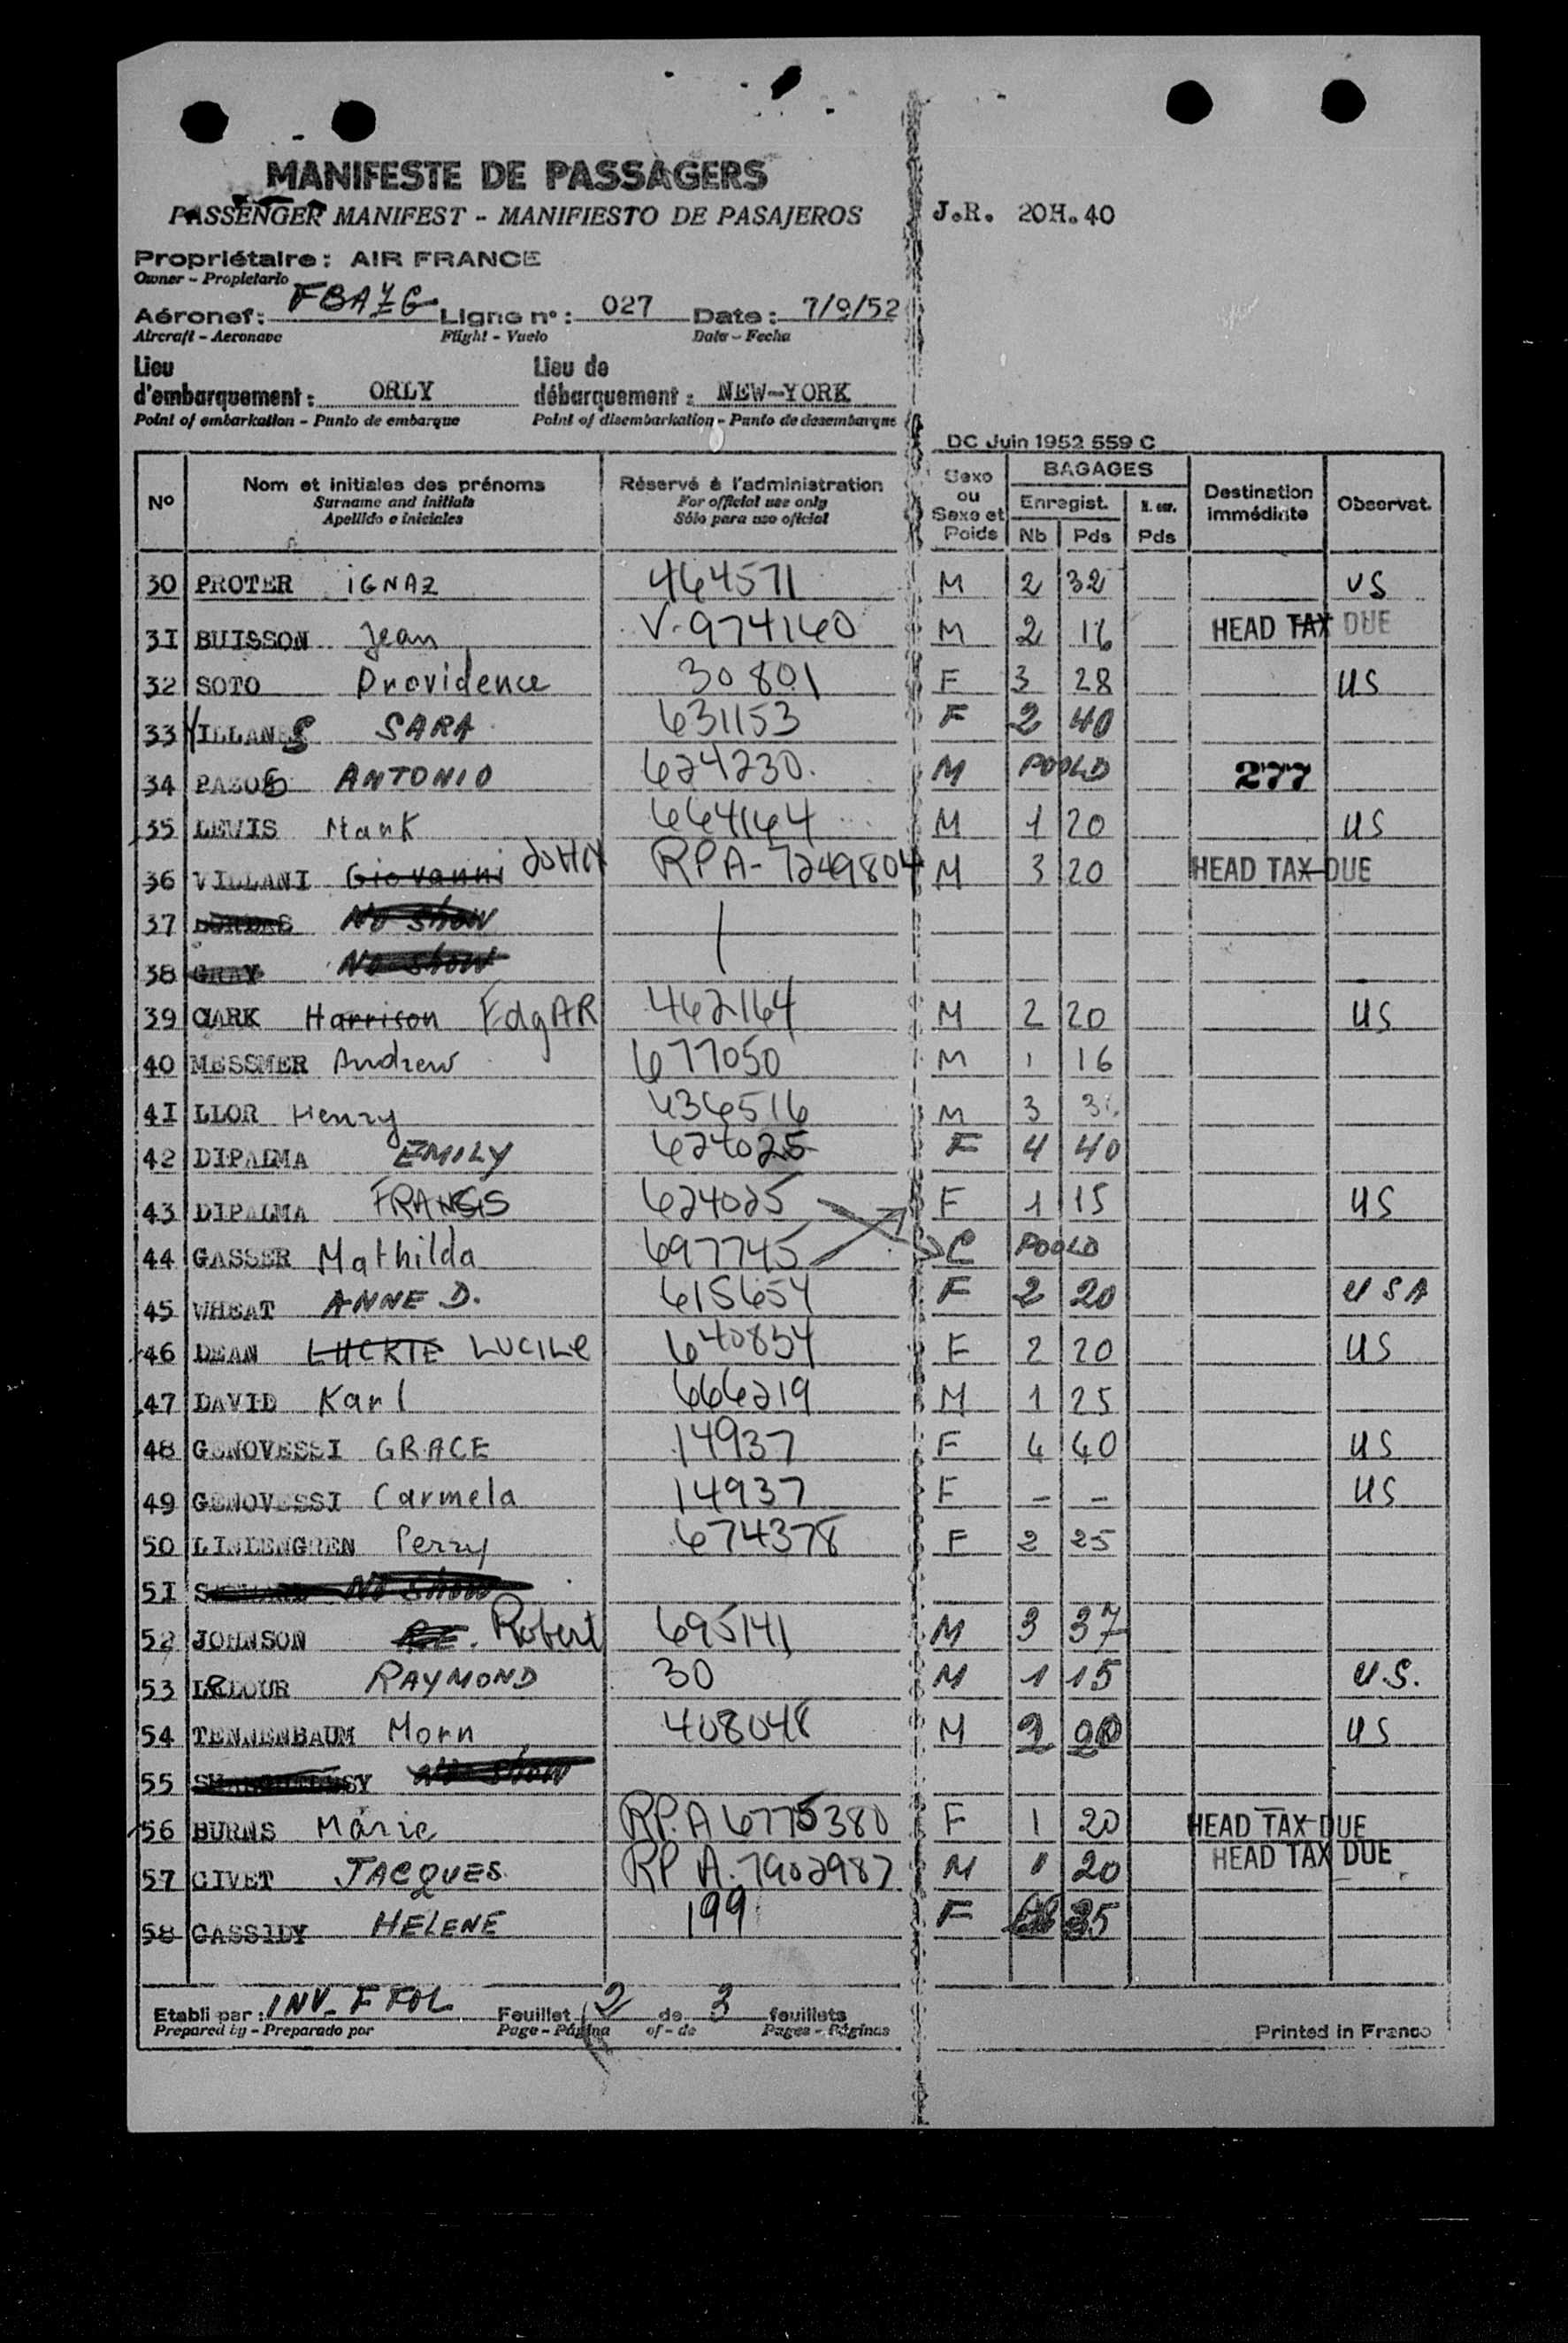 MANIFESTE DE PASSAGERS
PASSENGER MANIFEST - MANIFIESTO DE PASAJEROS
J.R. 20H.40
Propriétaire : AIR FRANCE
Owner - Propietario
Aéronef: FBAZG Ligne n° : 027 Date : 7/9/52
Aircraft - Aeronave Flight - Vuelo Date - Fecha
Lieu d'embarquement : ORLY Lieu de débarquement : NEW-YORK
Point of embarkation - Punto de embarque Point of disembarkation - Punto de desembarque
DC Juin 1952 559 C
N° Nom et initiales des prénoms Réservé à l'administration Sexe ou Sexe et Poids BAGAGES Destination immédiate Observat.
Surname and initials For official use only Enregist.
Apellido e iniciales Sólo para uso oficial Nb Pds Pds
30 PROTER IGNAZ 464571 M 2 32 US
3I BUISSON Jean V-974160 M 2 16 HEAD TAX DUE
32 SOTO Providence 30801 F 3 28 US
33 VILLANES SARA 631153 F 2 40
34 PAZOS ANTONIO 624230. M POOLD 277
35 LEWIS Mark 664164 M 1 20 US
36 VILLANI Giovanni JOHN RPA-7249804 M 3 20 HEAD TAX DUE
37 No Show
38 GRAY No Show
39 CLARK Harrison EdgAR 462164 M 2 20 US
40 MESSMER Andrew 677050 M 1 16
4I LLOR Henry 436516 M 3
42 DIPALMA EMILY 624025 F 4 40
43 DIPALMA FRANCIS 624025 F 1 15 US
44 GASSER Mathilda 697745 C POOLD
45 WHEAT ANNE D. 615654 F 2 20 USA
46 DEAN LUCKIE LUCILe 640834 F 2 20 US
47 DAVID Karl 666219 M 1 25
48 GENOVESSI GRACE 14937 F 4 40 US
49 GENOVESSI Carmela 14937 F - - US
50 LINDENGREN Perry 674378 F 2 25
5I No Show
52 JOHNSON Robert 695141 M 3 37
53 LELOUR RAYMOND 30 M 1 15 U.S.
54 TENNENBAUM Morn 408048 M 2 20 US
55 No Show
56 BURNS Marie RP.A 6775380 F 1 20 HEAD TAX DUE
57 CIVET JACQUES RP A.7902987 M 1 20 HEAD TAX DUE
58 CASSIDY HELENE 199 F 35
Etabli par : INV- Feuillet 2 de 3 feuillets
Prepared by - Preparado por Page - Página of - de Pages - Páginas
Printed in France